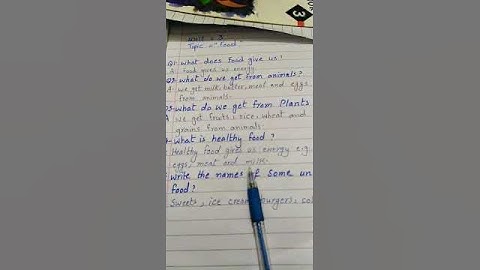 Unit - 3
Topic = "Food"
Q1- What does Food give us?
A- Food gives us energy.
Q2- What do we get from animals?
A- We get milk, butter, meat and eggs
from animals.
Q3- What do we get from Plants
A We get fruits, rice, wheat and
grains from animals.
What is healthy food?
Healthy food gives us energy e.g.
eggs, meat and milk.
Write the names of some un
food?
Sweets, ice cream, burgers, co
3